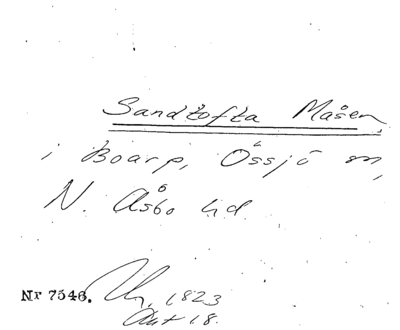 Sandtofta Måsen
i Boarp, Össjö sn,
N. Åsbo hd
Nr 7546.
1823
Akt 18.